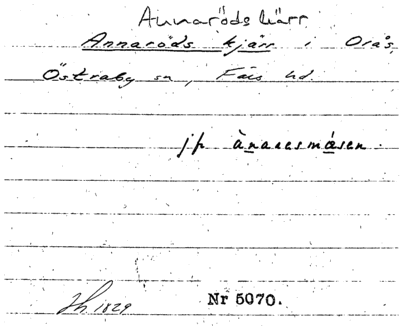 Annaröds kärr
Annaröds kjärr i Orås
Östraby sn, Färs hd.
jfr ànaresmåsen.
1829 Nr 5070.